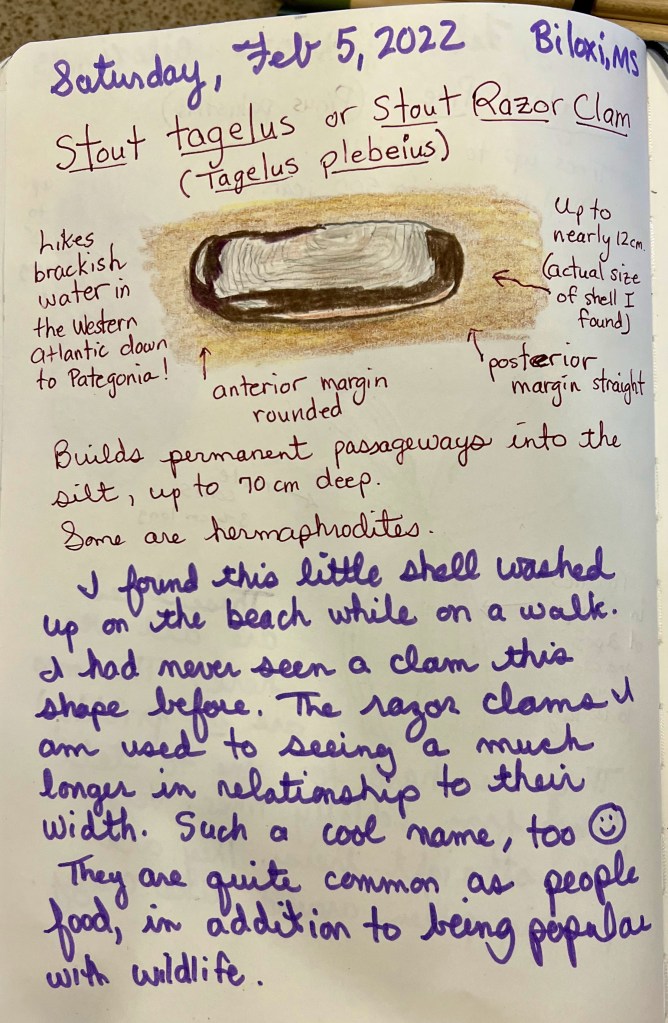 Saturday, Feb 5, 2022 Biloxi, MS
Stout tagelus or Stout Razor Clam
(Tagelus plebeius)
Likes
brackish
water in
the Western
Atlantic down
to Pategonia!
Up to
nearly 12cm.
(actual size
of shell I
found)
anterior margin
rounded
posterior
margin straight
Builds permanent passageways into the
silt, up to 70 cm deep.
Some are hermaphrodites.
I found this little shell washed
up on the beach while on a walk.
I had never seen a clam this
shape before. The razor clams I
am used to seeing a much
longer in relationship to their
width. Such a cool name, too ☺
They are quite common as people
food, in addition to being popular
with wildlife.